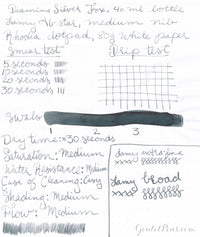 Diamine Silver Fox, 40 ml bottle
Lamy Al-star, medium nib
Rhodia dotpad, 80g white paper
Smear test
Drip test
5 seconds
10 seconds
20 seconds
30 seconds
Swab:
1 2 3
Dry time: 30 seconds
Saturation: Medium
Water Resistance: Medium
Ease of Cleaning: Easy
Shading: Medium
Flow: Medium
Lamy extra fine
Lamy broad
GouletPens.com